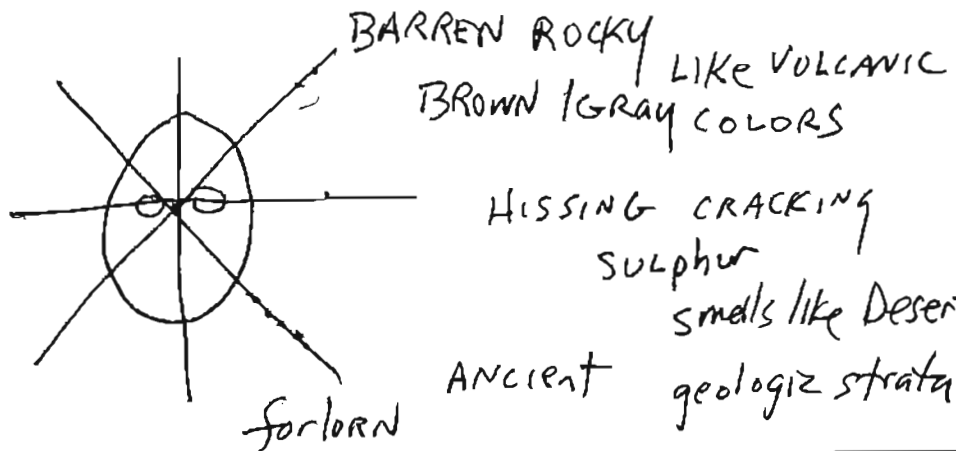 BARREN ROCKY
LIKE VOLCANIC
BROWN / GRAY COLORS
HISSING CRACKING
SULphur
smells like Deser
ANCIENT geologic strata
forlorn